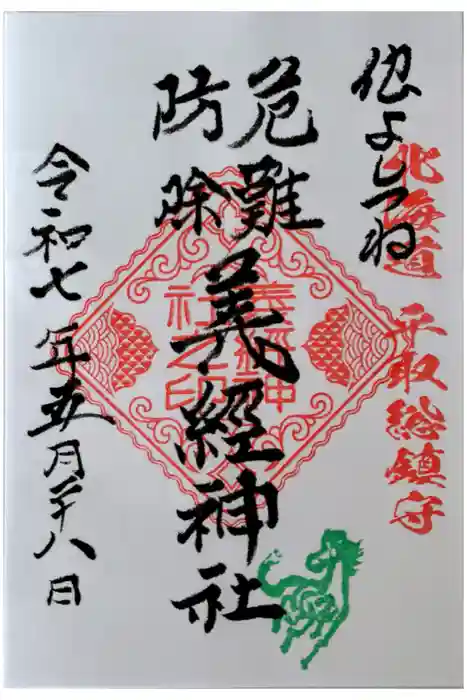 よしつね
北海道 平取総鎮守
危難
防除
義經神社
義經神
社之印
令和七年五月二十八日